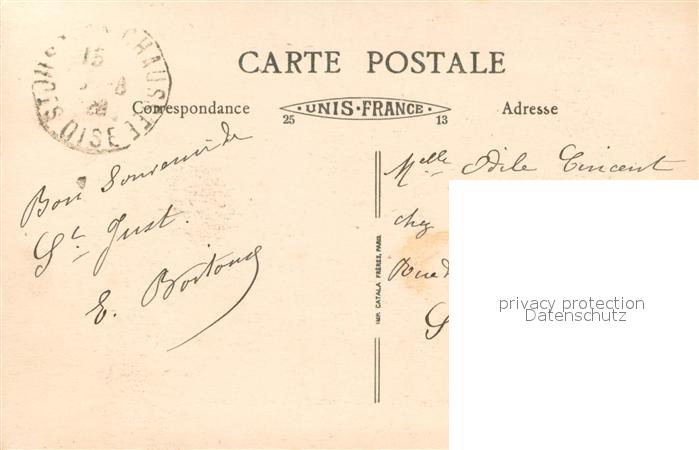 ST JUST EN CHAUSSEE
15
OISE
CARTE POSTALE
Correspondance
UNIS-FRANCE
25 13
Adresse
Bon Souvenir de
St Just.
E.
IMP. CATALA FRÈRES, PARIS
Melle Odile Vincent
chez
Rue
S
privacy protection
Datenschutz